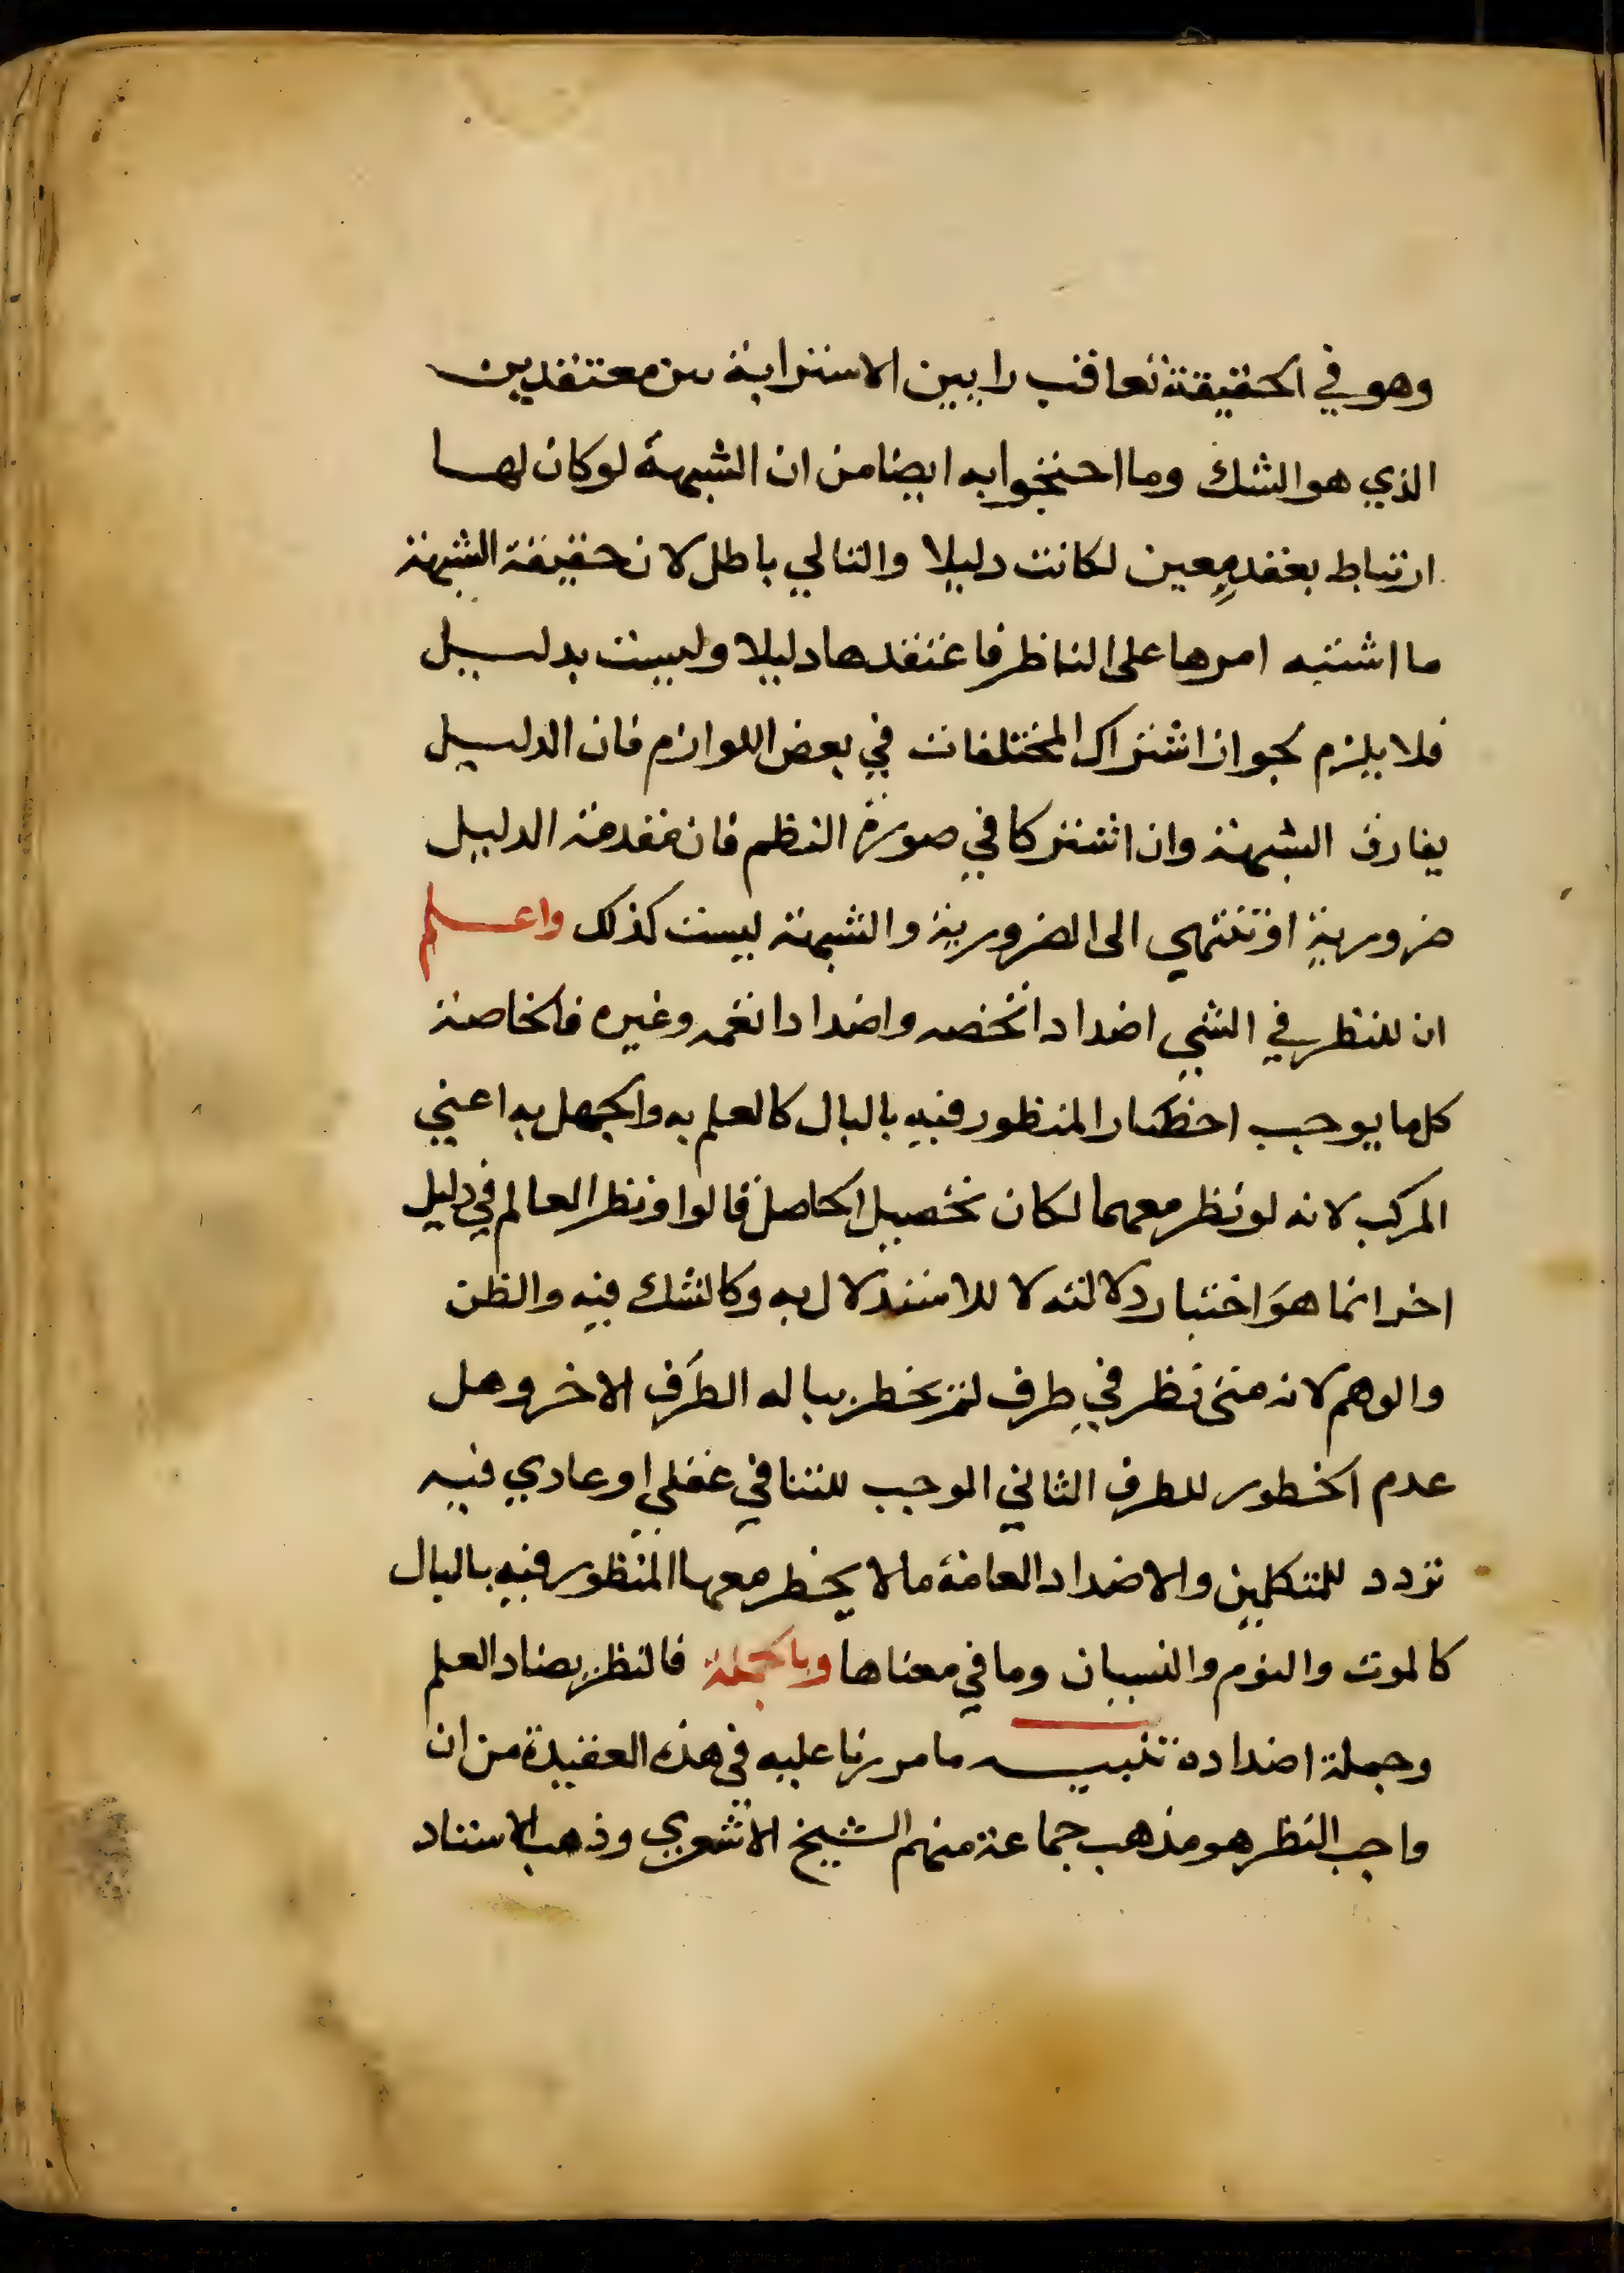 وهو في الحقيقة تعاقب رايين الاسترابة من معتقدين
الذي هو الشك وما احتجوا به ايضا من ان الشبهة لو كان لها
ارتباط بعقد معين لكانت دليلا والتالي باطل لان حقيقة الشبهة
ما اشتبه امرها على الناظر فاعتقدها دليلا وليست بدليل
فلا يلزم لجواز اشتراك المختلفات في بعض اللوازم فان الدليل
يفارق الشبهة وان اشتركا في صورة النظم فان مقدمة الدليل
ضرورية او تنتهي الى الضرورية والشبهة ليست كذلك واعلم
ان للنظر في الشي اضدادا تخصه واضدادا تعمه وغيره فالخاصة
كل ما يوجب اخطار المنظور فيه بالبال كالعلم به والجهل به اعني
المركب لانه لو نظر معهما لكان تحصيل الحاصل قالوا ونظر العالم في دليل
اخر انما هو اختبار دلالته لا للاستدلال به وكالشك فيه والظن
والوهم لانه متى نظر في طرف لم يخطر بباله الطرف الاخر وهل
عدم الخطور للطرف الثاني الموجب للتنافي عقلي او عادي فيه
تردد للمتكلمين والاضداد العامة ما لا يخطر معها المنظور فيه بالبال
كالموت والنوم والنسيان وما في معناها وبالجملة فالنظر يضاد العلم
وجملة اضداده تنبيه ما مررنا عليه في هذه العقيدة من ان
واجب النظر هو مذهب جماعة منهم الشيخ الاشعري وذهب الاستاد